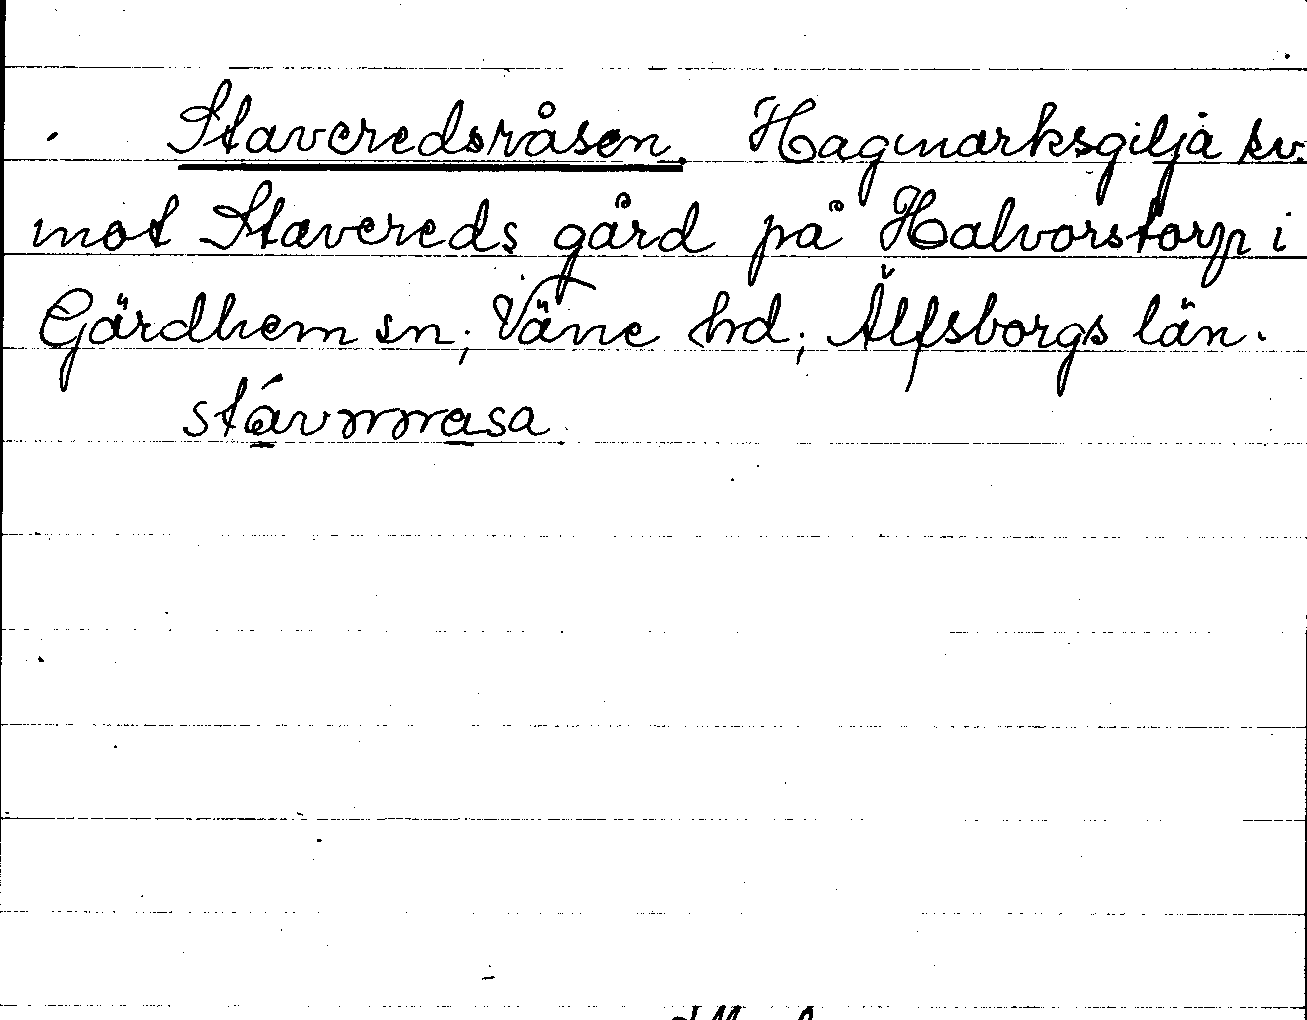 Staveredsråsen. Hagmarksgilja kv.
mot Stavereds gård på Halvorstorp i
Gärdhem sn; Väne hd; Älfsborgs län.